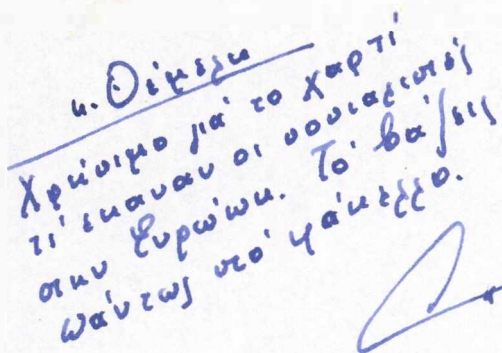 κ. Θέμελη
Χρήσιμο γιά το χαρτί
τί έκαναν οι σοσιαλιστές
στην Ευρώπη. Τό βάζεις
πάντως στό φάκελλο.